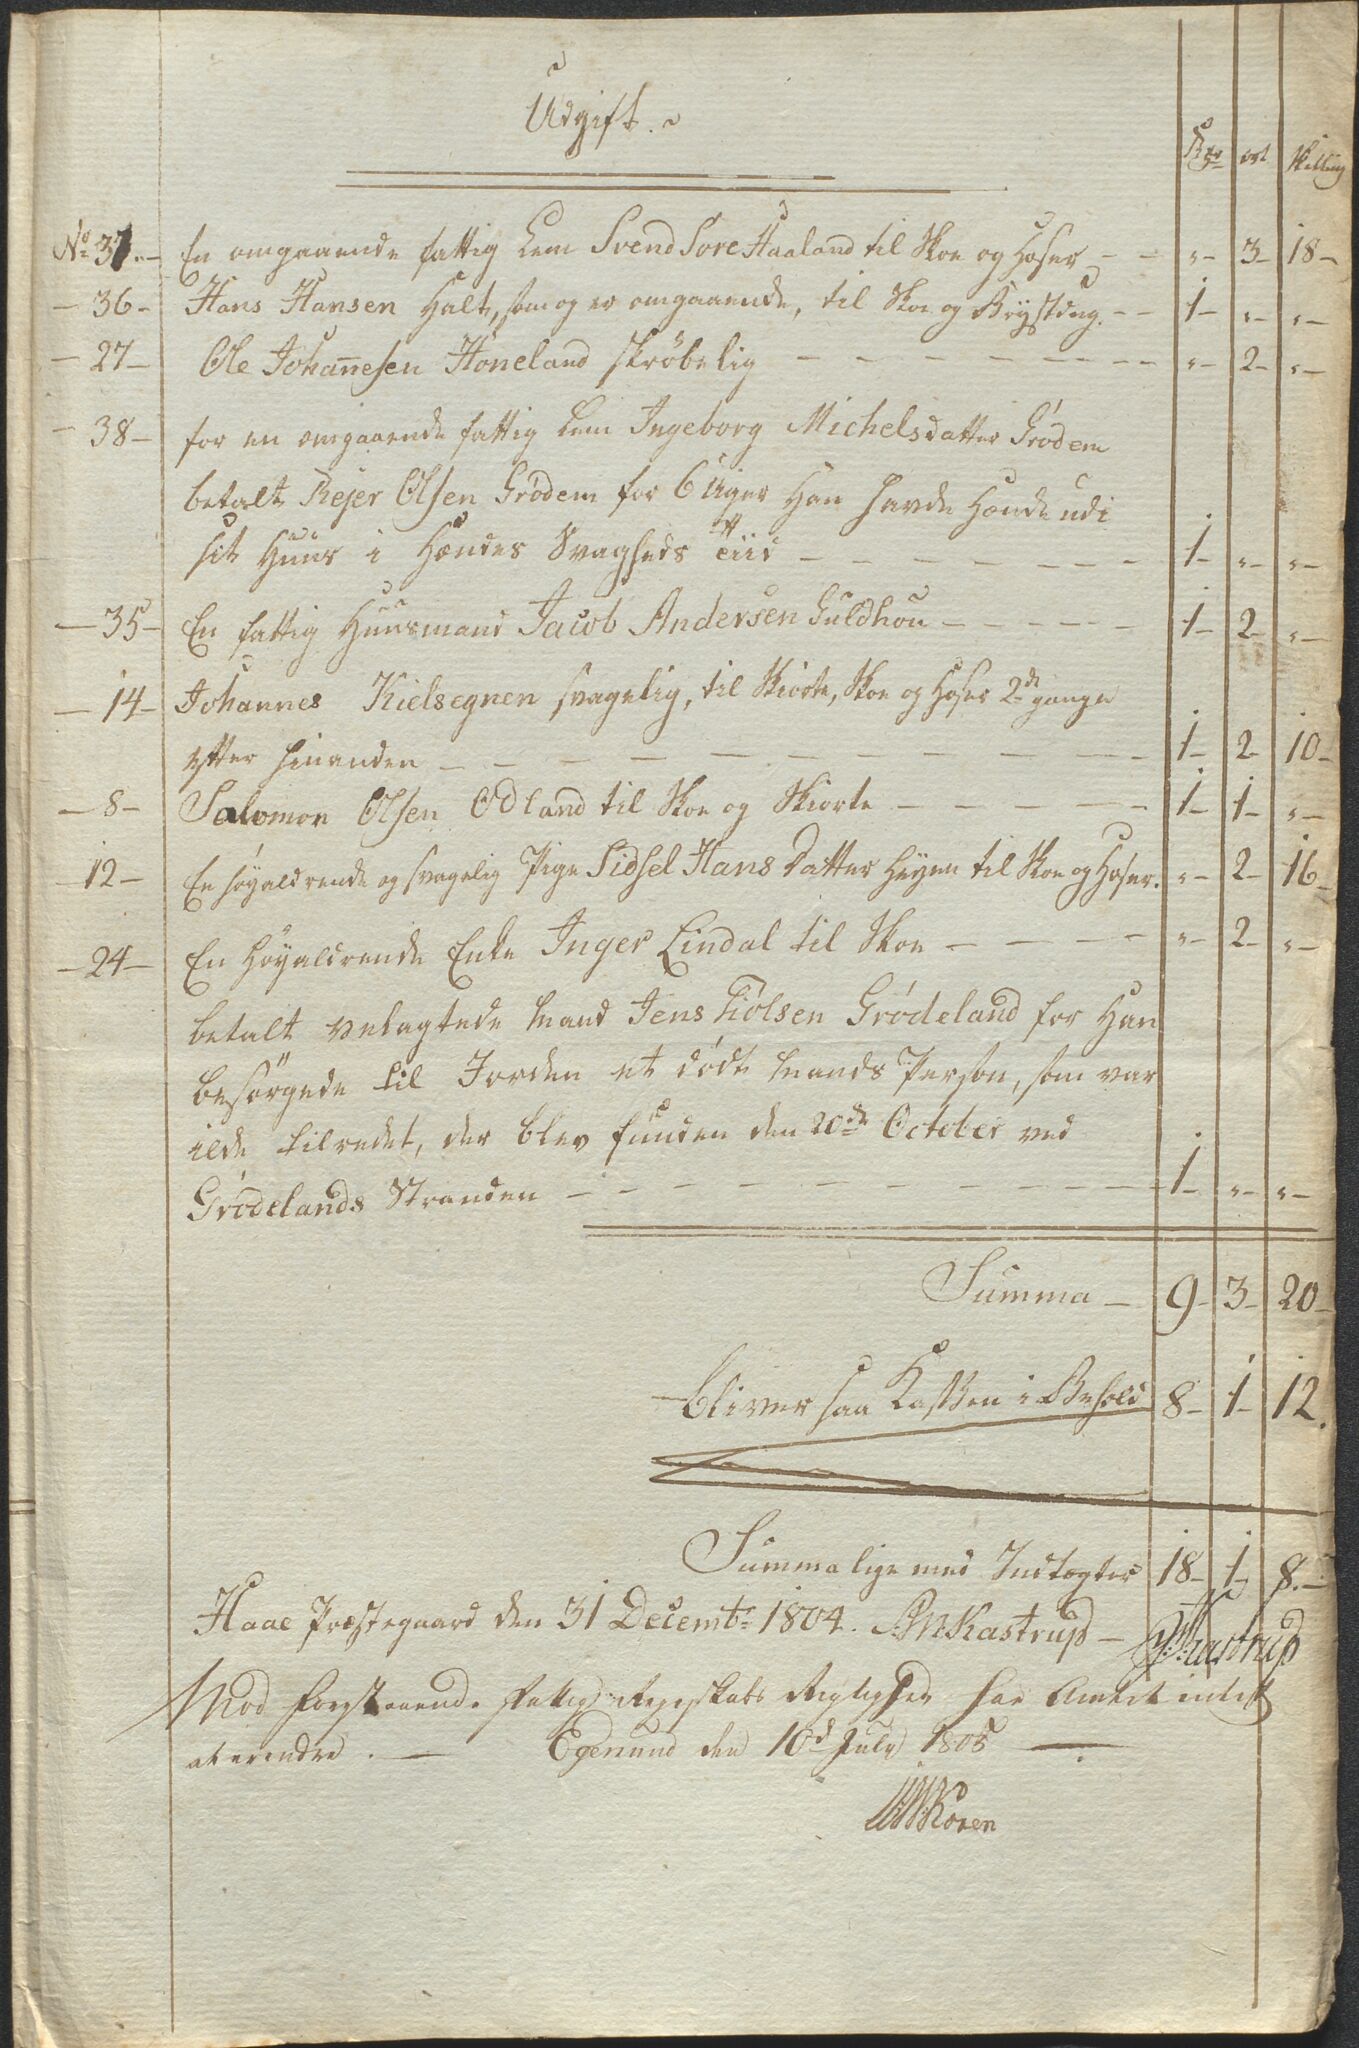 Udgift.
Rdr ort Skilling
No 37. En omgaaende fattig Lem Svend Sore Haaland til Skoe og Hoser - - „ - 3 - 18 -
- 36 - Hans Hansen Halt, som og er omgaaende, til Skoe og - - 1 - „ - „ -
- 27 - Ole Johannesen Höneland skröbelig - - - „ - 2 - „ -
- 38 - for en omgaaende fattig Lem Ingeborg Michelsdatter Grödem
betalt Rejer Olsen Grödem for 6 Uger Han havde Hænde udi
sit Huus i Hændes Svagheds Tiid - - - 1 - „ - „ -
- 35 - En fattig Huusmand Jacob Andersen Guldhou - - - 1 - 2 - „ -
- 14 - Johannes Kielsegnen svagelig, til Skiorte, Skoe og Hoser 2de gange
efter hinanden - - - 1 - 2 - 10 -
- 8 - Salomon Olsen Odland til Skoe og Skiorte - - - 1 - 1 - „ -
- 12 - En höyaldrende og svagelig Pige Sidsel Hans Datter Heyen til Skoe og Hoser. „ - 2 - 16 -
- 24 - En Höyaldrende Enke Inger Lindal til Skoe - - - „ - 2 - „ -
betalt velagtede Mand Jens Tiölsen Grödeland for Han
besörgede til Jorden et dödt Mands Person, som var
ilde tilredet, der blev funden den 20de October ved
Grödelands Stranden - - - 1 - „ - „ -
Summa - 9 - 3 - 20 -
bliver saa Kassen i Behold 8 - 1 - 12.
Summa lige med Indtægter 18 - 1 - 8. -
Haae Præstegaard den 31 Decembr 1804. Kastrup - Kastrup
Mod forestaaende Fattig Regnskabs Rigtighed har Amtet intet
at erindre. - Egersund den 10d July 1805 -
Koren